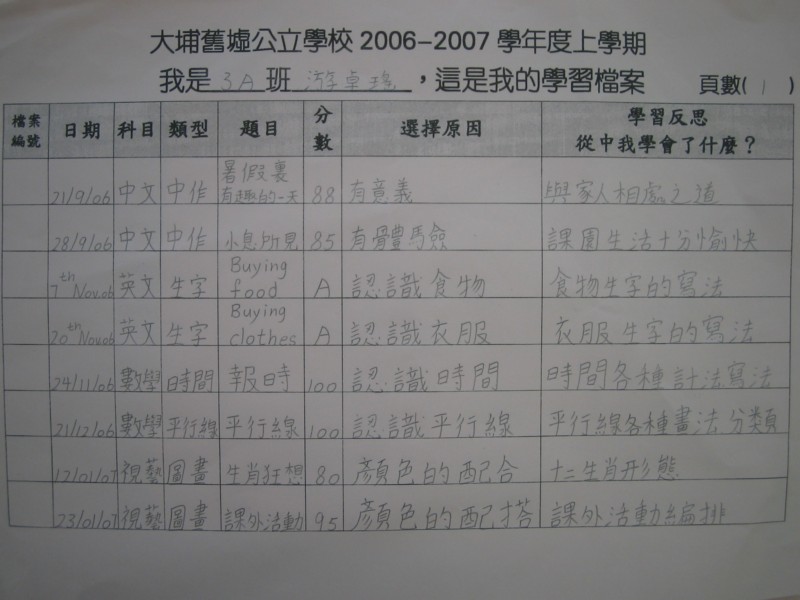 大埔舊墟公立學校 2006-2007 學年度上學期
我是 3A 班 游卓瑤 ,這是我的學習檔案 頁數( 1 )
檔案編號 日期 科目 類型 題目 分數 選擇原因 學習反思 從中我學會了什麼?
21/9/06 中文 中作 暑假裏有趣的一天 88 有意義 與家人相處之道
28/9/06 中文 中作 小息所見 85 有體驗 課園生活十分愉快
7th Nov.06 英文 生字 Buying food A 認識食物 食物生字的寫法
20th Nov.06 英文 生字 Buying clothes A 認識衣服 衣服生字的寫法
24/11/06 數學 時間 報時 100 認識時間 時間各種計法寫法
21/12/06 數學 平行線 平行線 100 認識平行線 平行線各種畫法分類
12/01/07 視藝 圖畫 生肖狂想 80 顏色的配合 十二生肖形態
23/01/07 視藝 圖畫 課外活動 95 顏色的配搭 課外活動編排